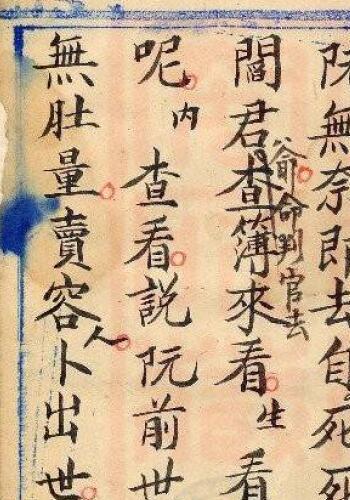 無奈郎去自死死
命判官去
閻君查簿來看生看
呢内查看說阮前世
無肚量賣容人卜出世